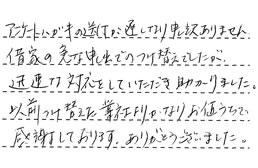 アンケートハガキの送付が遅くなり申し訳ありません。
借家の急な申し出でのつけ替えでしたが、
迅速な対応をしていただき助かりました。
以前つけ替えた業者よりかなりお値うちで
感謝しております。ありがとうございました。